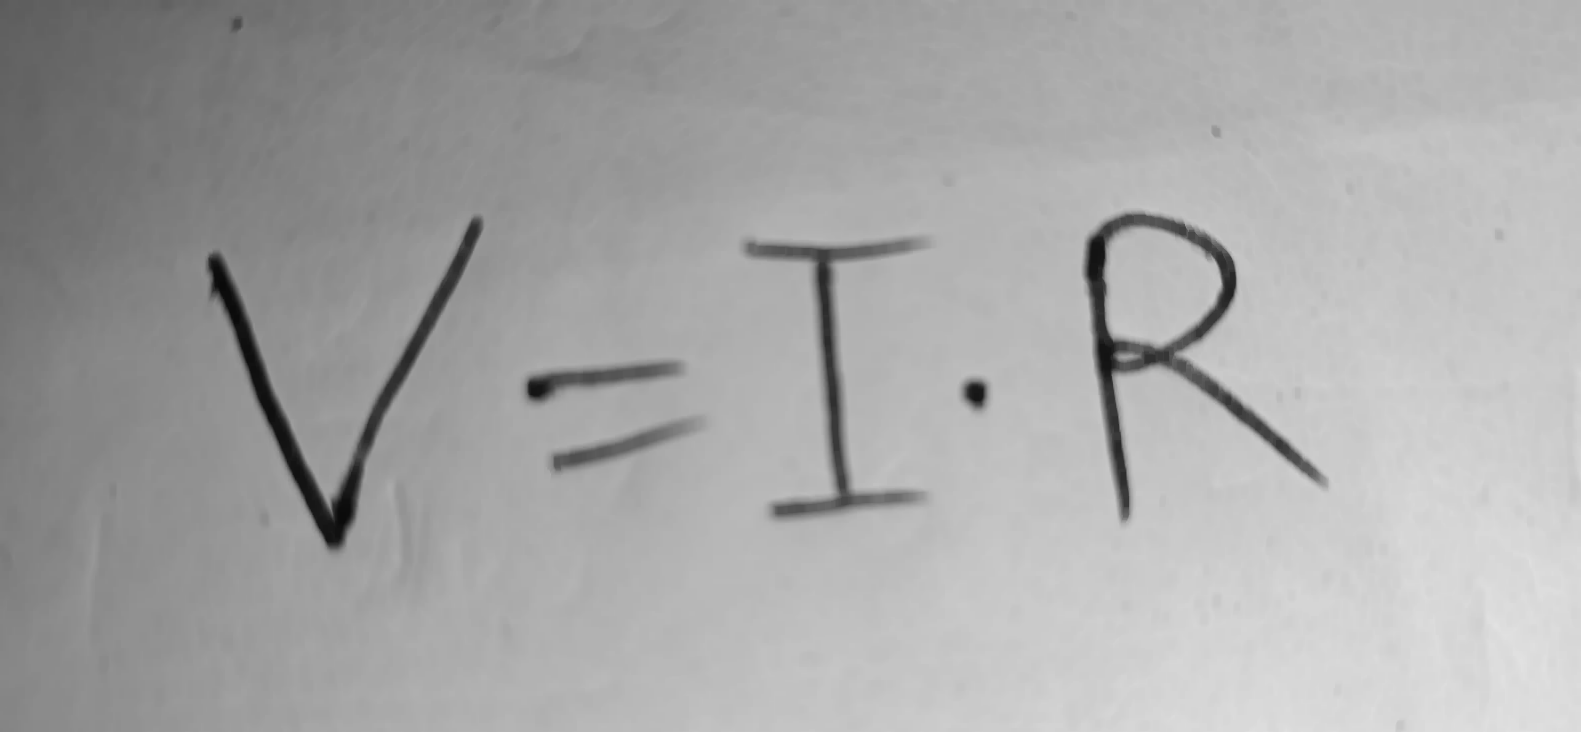 V = I · R